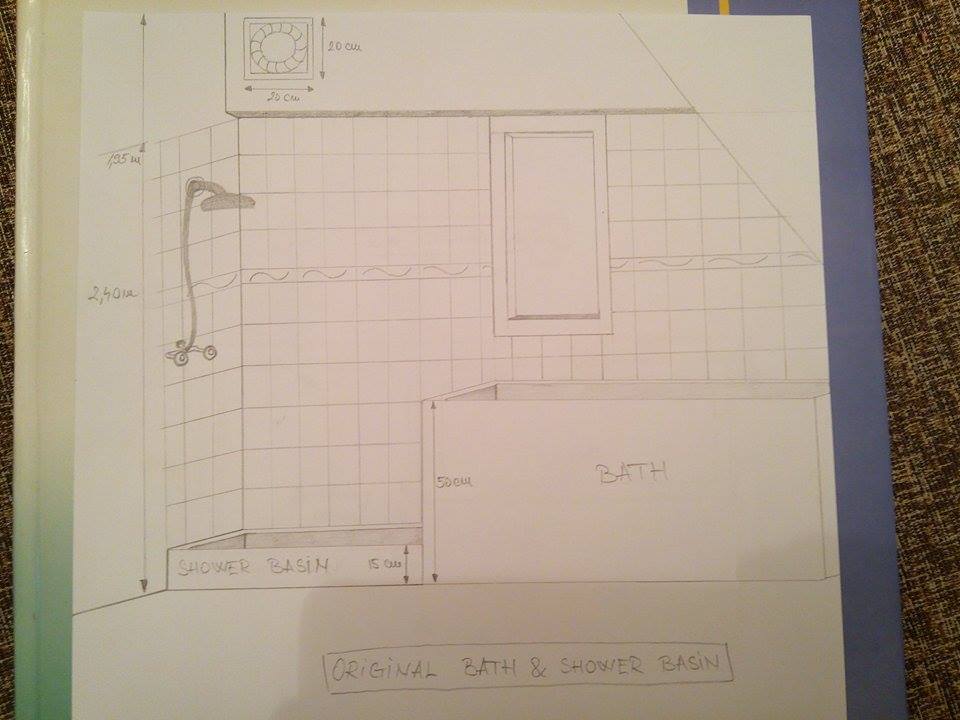 20 cm
20 cm
1,95 m
2,40 m
50 cm
BATH
SHOWER BASIN
15 cm
ORIGINAL BATH & SHOWER BASIN